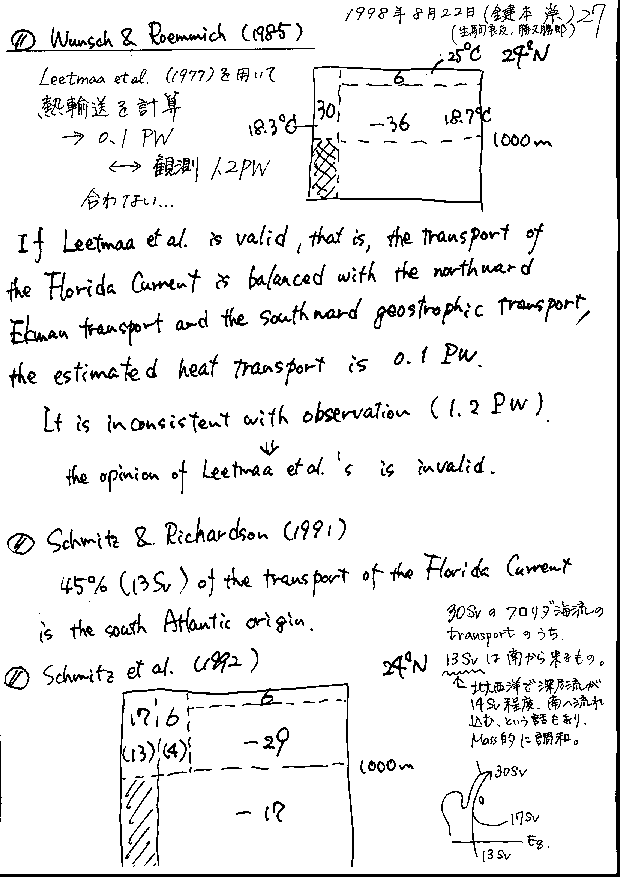 1998年8月22日(鍵本 崇) 27
(生駒
⑪ Wunsch & Roemmich (1985)
Leetmaa et al. (1977) を用いて
熱輸送を計算
→ 0.1 PW
↔ 観測 1.2PW
合わない…
25°C 24°N
6
30
18.3°C
-36
18.7°C
1000m
If Leetmaa et al. is valid, that is, the transport of
the Florida Current is balanced with the northward
Ekman transport and the southward geostrophic transport,
the estimated heat transport is 0.1 PW.
It is inconsistent with observation (1.2 PW).
↓
the opinion of Leetmaa et al.'s is invalid.
⑪ Schmitz & Richardson (1991)
45% (13 Sv) of the transport of the Florida Current
is the south Atlantic origin.
⑪ Schmitz et al. (1992)
24°N
17 6
6
(13) (4)
-29
1000m
-17
30Svのフロリダ海流の
transportのうち
13Svは南から来るもの。
↑ 北大西洋で深層流が
14Sv程度、南へ流れ
込む、という話もあり、
Mass的に調和。
30Sv
17Sv
Eq.
13Sv